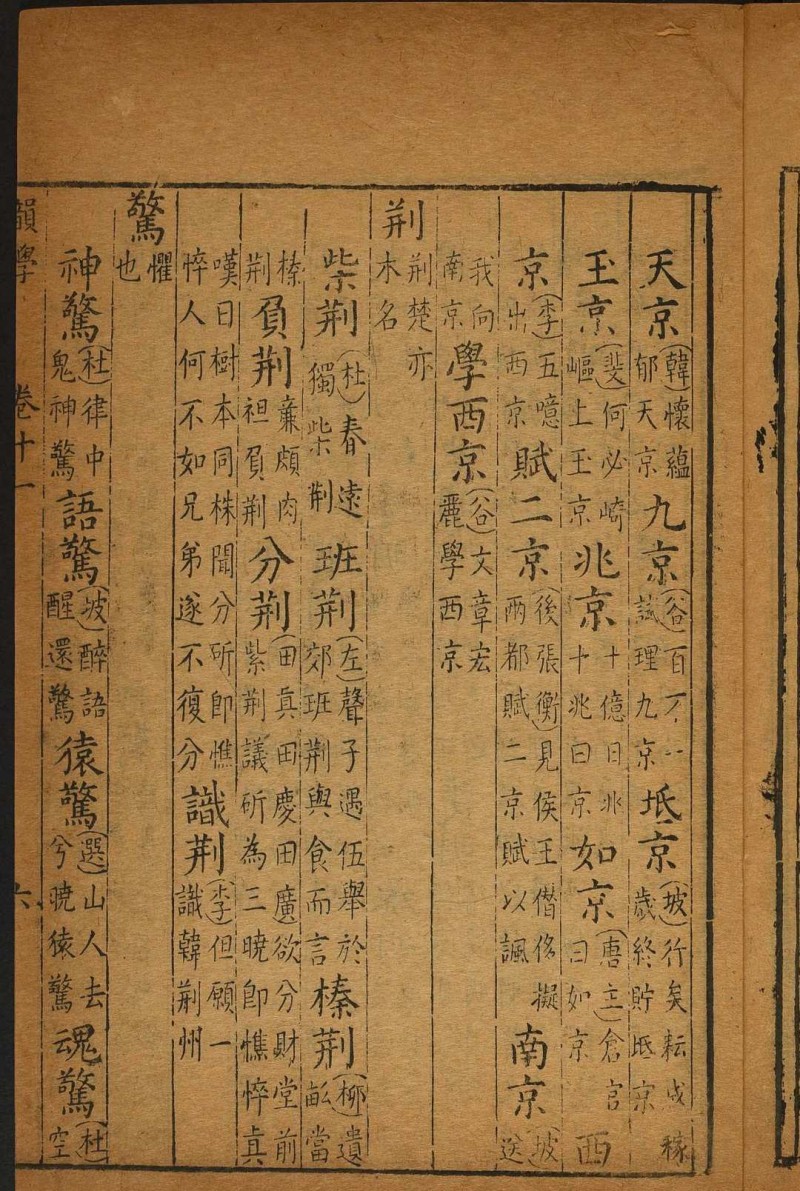 天京(韓)懷蘊郁天京九京(谷)百不一試理九京坻京(坡)行矣耘成稼歲終貯坻京
玉京(斐)何必崎嶇上玉京兆京十億曰兆十兆曰京如京(唐立)倉官曰如京西
京(李)五噫出西京賦二京(後張衡)見侯王僭侈擬兩都賦二京賦以諷南京(坡)送
我向南京學西京(谷)文章宏麗學西京
荆荆楚亦木名
柴荆(杜)春遠獨柴荆班荆(左)聲子遇伍舉於郊班荆與食而言榛荆(柳)遺畝當
榛荆負荆亷頗肉袒負荆分荆(田真田慶田廣欲分財堂前紫荆議斫為三曉卽憔悴真
嘆曰樹本同株聞分斫卽憔悴人何不如兄弟遂不復分識荆(李)但願一識韓荆州
驚懼也
神驚(杜)律中鬼神驚語驚(坡)醉語醒還驚猿驚(選)山人去兮曉猿驚魂驚(杜)空
韻學 卷十一 六